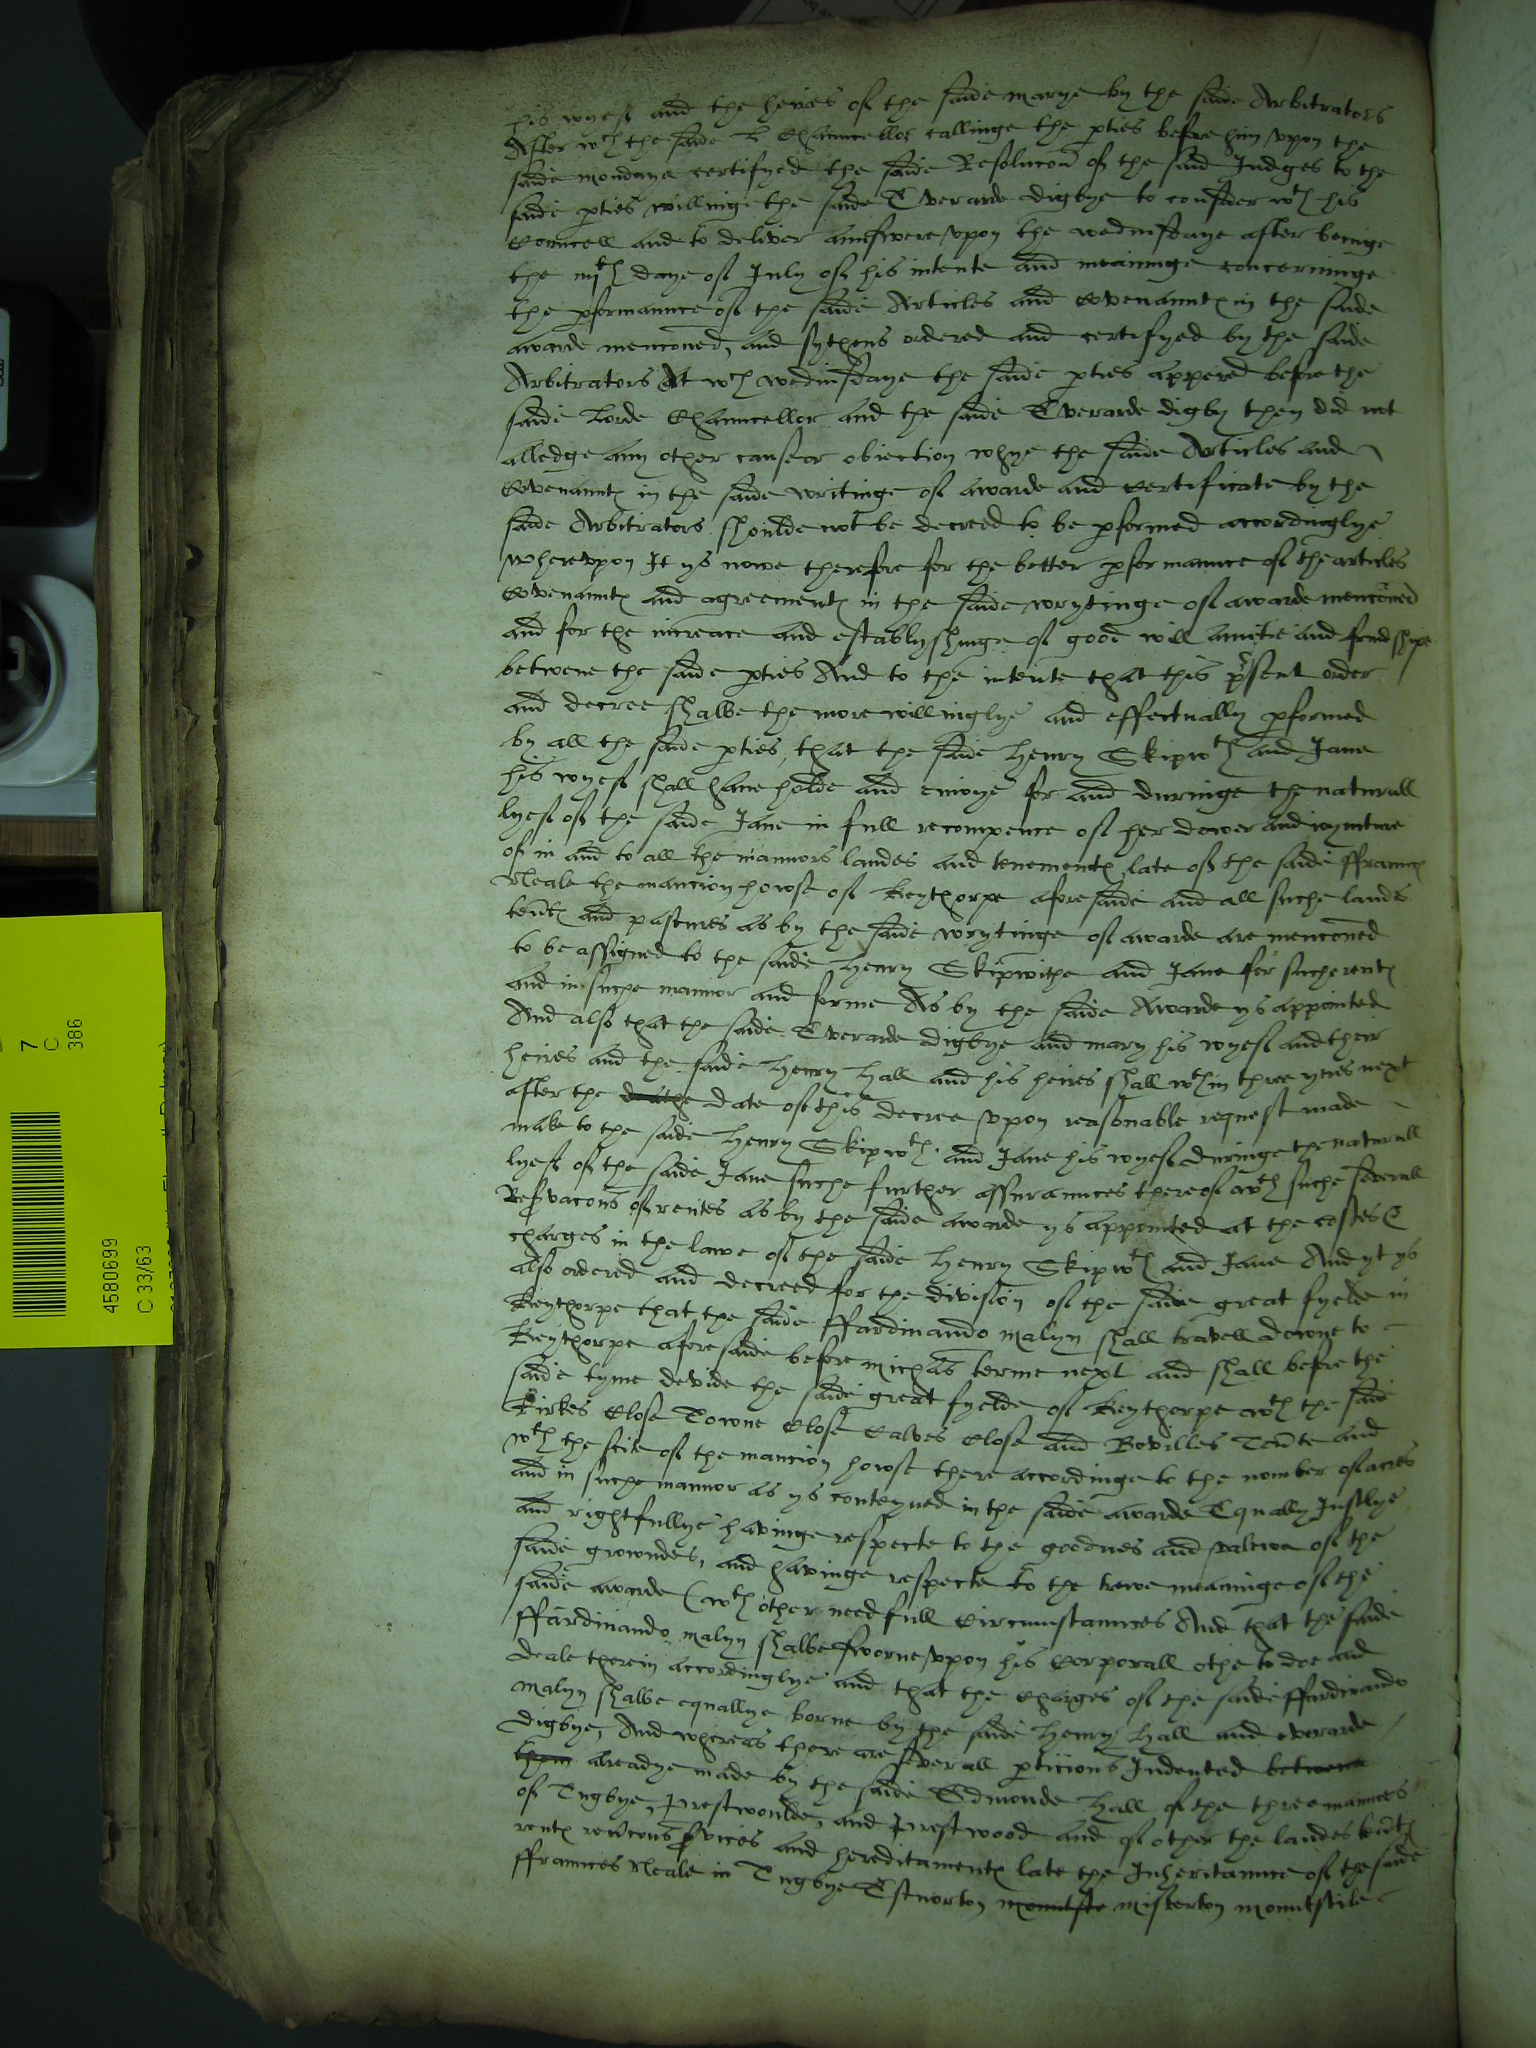 his wyeff and the heires of the saide marye by the saide Arbitrators
After wch the saide L Chauncellor callinge the pties before him vpon the
saide mondaye certifyed the saide Resolucon of the said Judges to the
saide pties willinge the saide Everarde digbye to consider wth his
Councell and to deliver aunswere vpon the wednisdaye after beinge
the iiijth daye of July of his intente and meaninge concerninge
the pformaunce of the saide Articles and Covenauntes in the saide
awarde menconed, and sythens ordered and certifyed by the saide
Arbitrators At wch wednisdaye the saide pties appered before the
saide Lorde Chauncellor and the saide Everarde digby then did not
alledge any other cause or obiection whye the saide Articles and
Covenauntes in the saide writinge of awarde and Certificate by the
saide Arbitrators shoulde not be decreed to be pformed accordinglye
wherevpon It ys nowe therefore for the better pformaunce of the articles
Covenauntes and agreementes in the saide wrytinge of awarde menconed
and for the increace and establyshinge of good will amitie and frindshipe
betwene the saide pties And to the intente that this psent order
and decree shalbe the more willinglye and effectually pformed
by all the saide pties, that the saide Henry Skipwth and Jane
his wyeff shall have holde and enioye for and duringe the naturall
lyeff of the saide Jane in full recompence of her dower and ioynture
of in and to all the mannors landes and tenementes late of the saide ffraunces
Neale the mancion howse of Keythorpe aforesaide and all suche landes
tentes and pastures as by the saide wrytinge of awarde are menconed
to be assigned to the saide Henry Skipwithe and Jane for suche rentes
and in suche mannor and forme As by the saide Awarde ys appointed
And also that the saide Everarde digbye and mary his wyeff and their
heires and the saide Henry Hall and his heires shall wthin three yeres next
after the deathe date of this decree vpon reasonable request made
make to the saide Henry Skipwth and Jane his wyeff duringe the naturall
lyeff of the saide Jane suche further assuraunces thereof wth suche severall
Reservacons of rentes as by the saide awarde ys appointed at the costes &
charges in the lawe of the saide Henry Skipwth and Jane And yt ys
also ordered and decreed for the division of the saide great fyelde in
Keythorpe that the saide ffardinando malyn shall travell downe to
Keythorpe aforesaide before michas terme next and shall before the
saide tyme devide the saide great fyelde of Keythorpe wth the saide
Kirkes Close Towne Close Calves Close and Bovilles Tente and
wth the scite of the mancion howse there accordinge to the nomber of acres
and in suche mannor as ys conteyned in the saide awarde Equally Justlye
and rightfullye havinge respecte to the goodnes and valewe of the
saide growndes, and havinge respecte to the trewe meaninge of the
saide awarde (wth other needfull Circumstaunces And that the saide
ffardinando malyn shalbe sworne vpon his Corporall othe to doe and
deale therein accordinglye and that the Charges of the saide ffardinando
malyn shalbe equallye borne by the saide Henry Hall and everarde
digbye, And whereas there are severall peticions Indented betwene
them alreadye made by the saide Edmonde Hall of the three mannors
of Tugbye, Prestwoulde, and Prestwood and of other the landes tentes
rentes revcons services and hereditamentes late the Inheritaunce of the saide
ffraunces Neale in Tugbye Estnorton mountste misterton mountstile
7
C
386
4580699
C 33/63